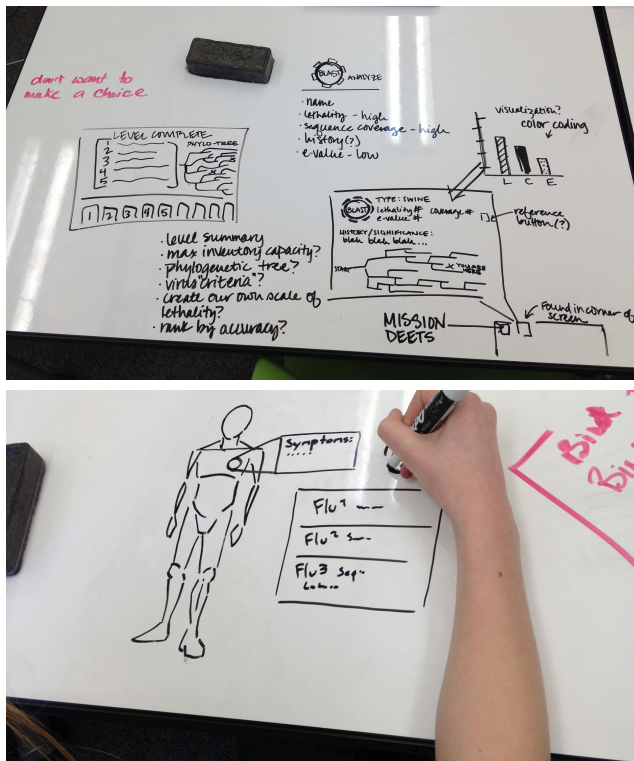 don't want to
make a choice
BLAST ANALYZE
• name
• lethality - high
• sequence coverage - high
• history(?)
• e-value - low
visualization?
color coding
L C E
LEVEL COMPLETE
PHYLO-TREE
1
2
3
4
5
1 2 3 4 5
• level summary
• max inventory capacity?
• phylogenetic tree?
• virus "criteria"?
• create our own scale of
lethality?
• rank by accuracy?
BLAST
TYPE: SWINE
lethality # coverage #
e-value #
HISTORY/SIGNIFICANCE:
blah blah blah...
START
X YOU ARE
HERE
reference
button(?)
MISSION
DEETS
Found in corner of
screen
Symptoms:
.....
Flu 1
Flu 2
Flu 3